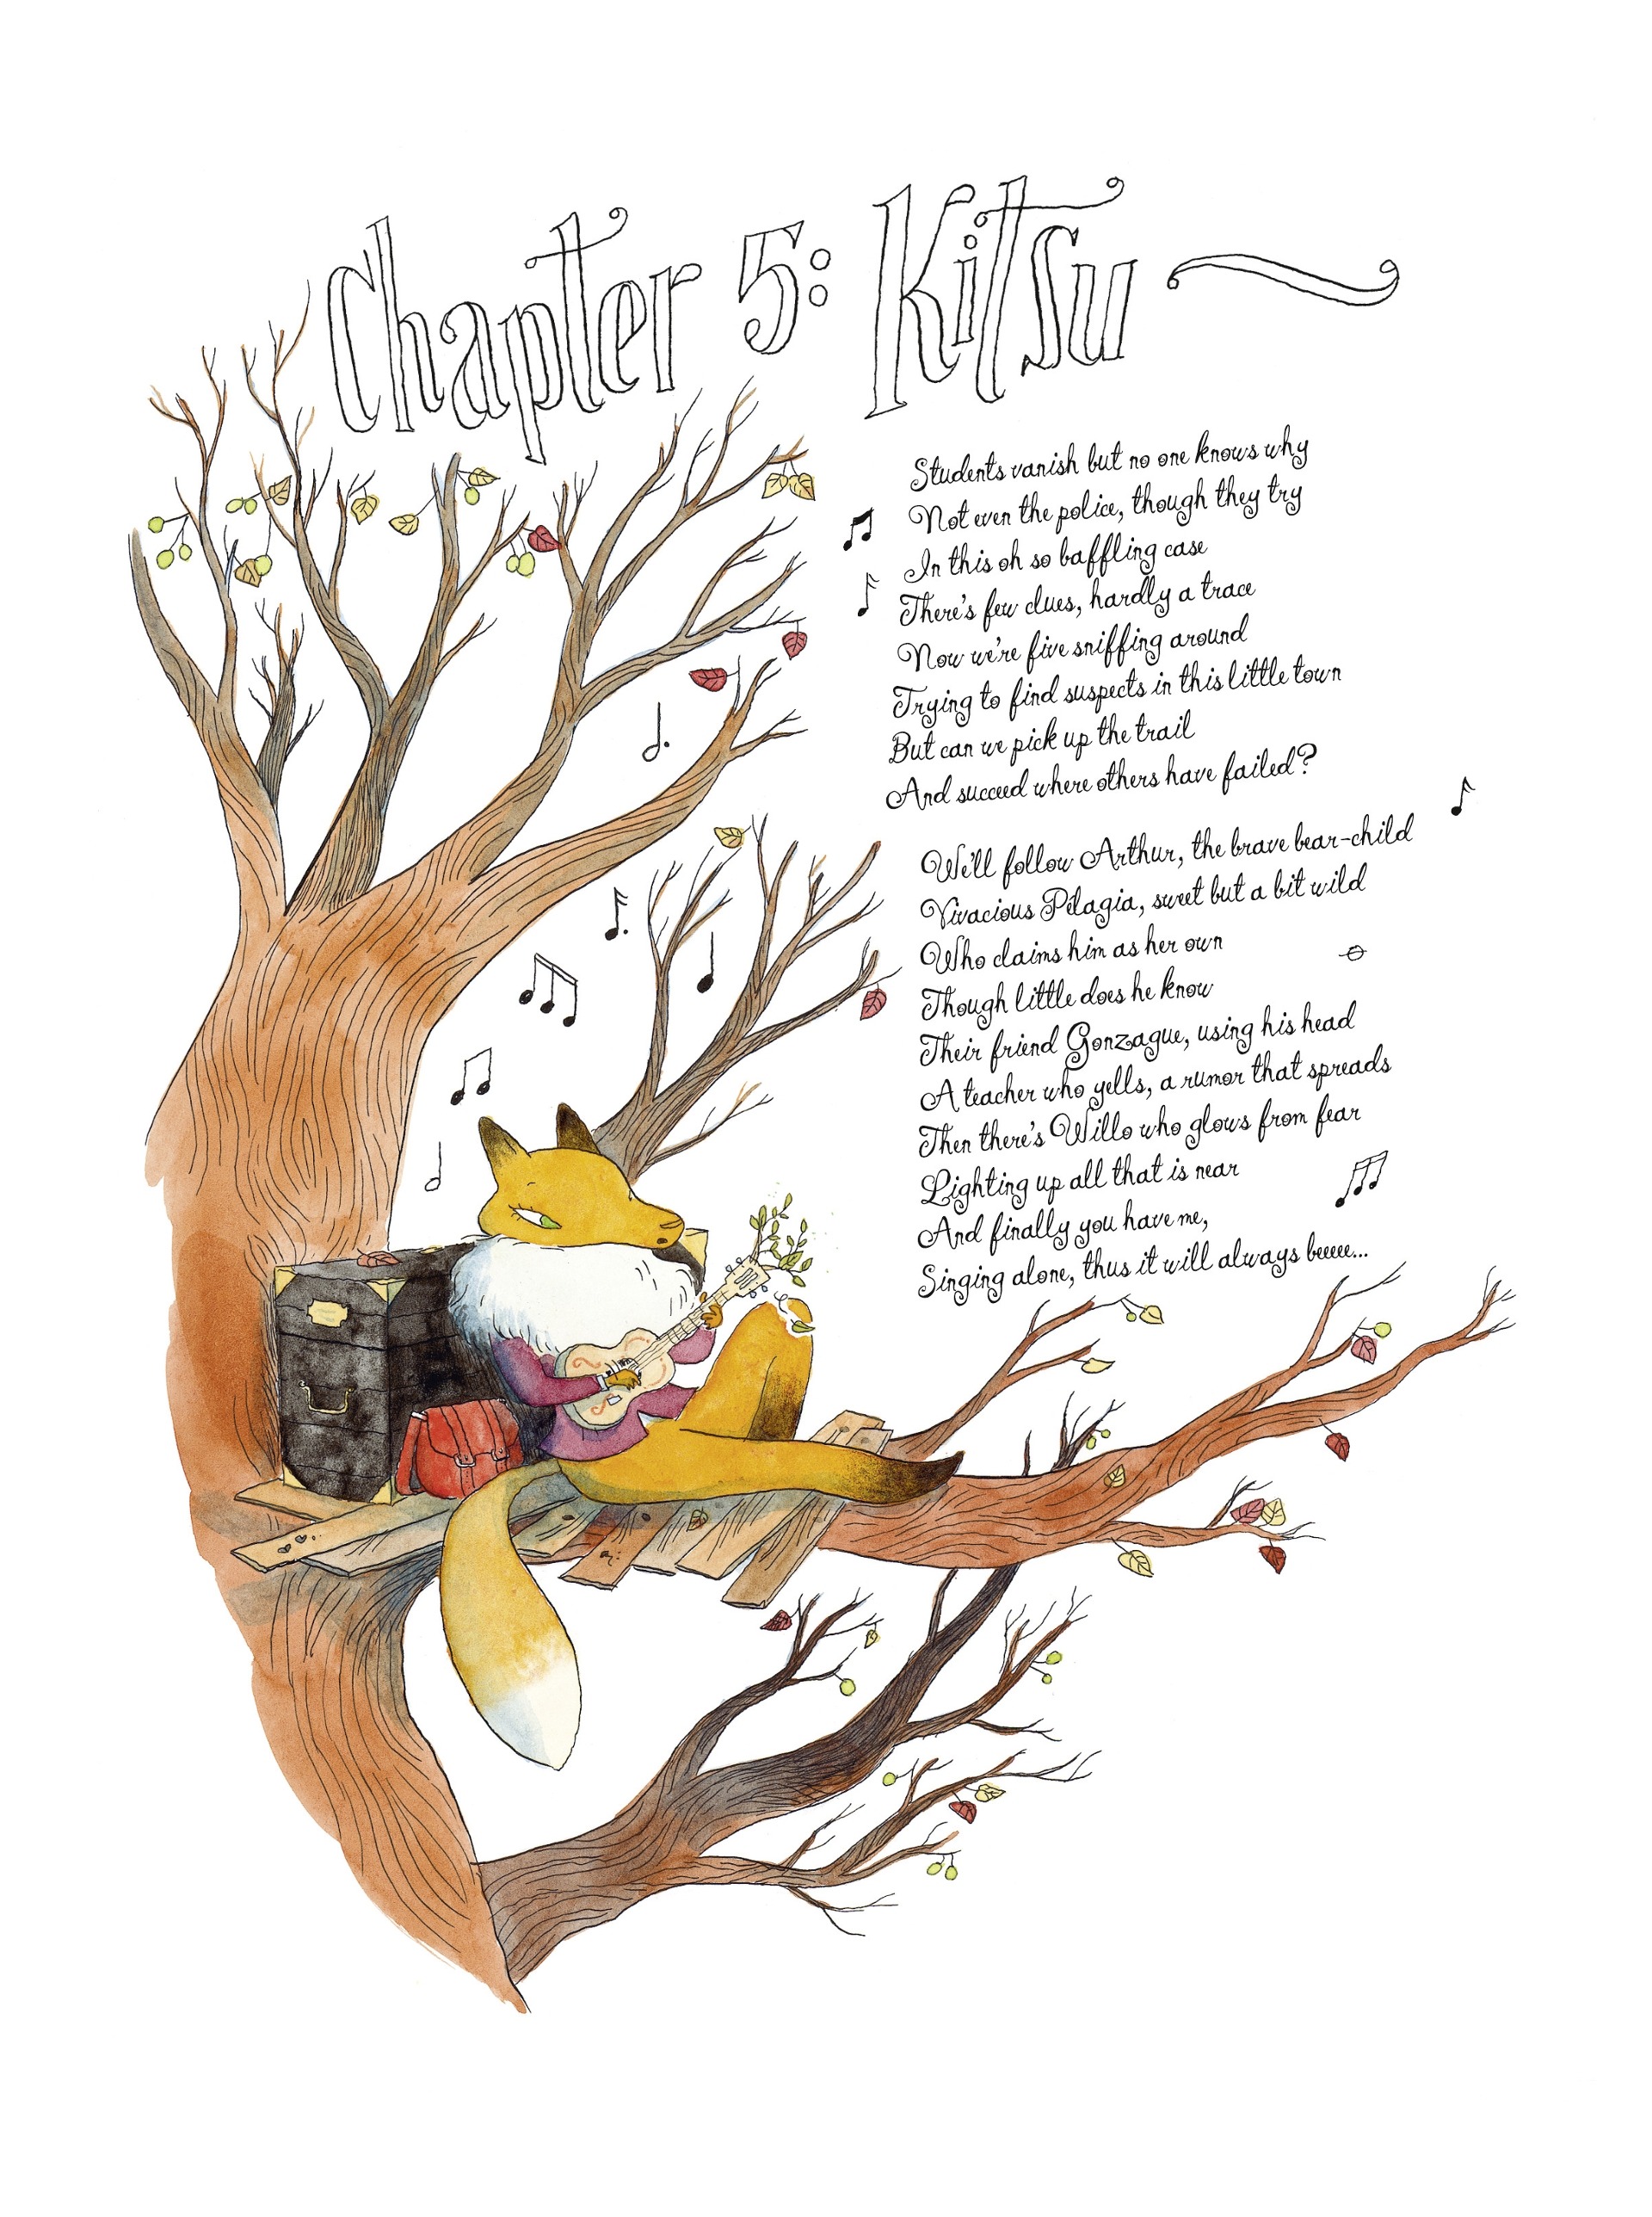 Chapter 5: Kitsu
Students vanish but no one knows why
Not even the police, though they try
In this oh so baffling case
There's few clues, hardly a trace
Now we're five sniffing around
Trying to find suspects in this little town
But can we pick up the trail
And succeed where others have failed?
We'll follow Arthur, the brave bear-child
Vivacious Pélagia, sweet but a bit wild
Who claims him as her own
Though little does he know
Their friend Gonzague, using his head
A teacher who yells, a rumor that spreads
Then there's Willo who glows from fear
Lighting up all that is near
And finally you have me,
Singing alone, thus it will always beeeee...